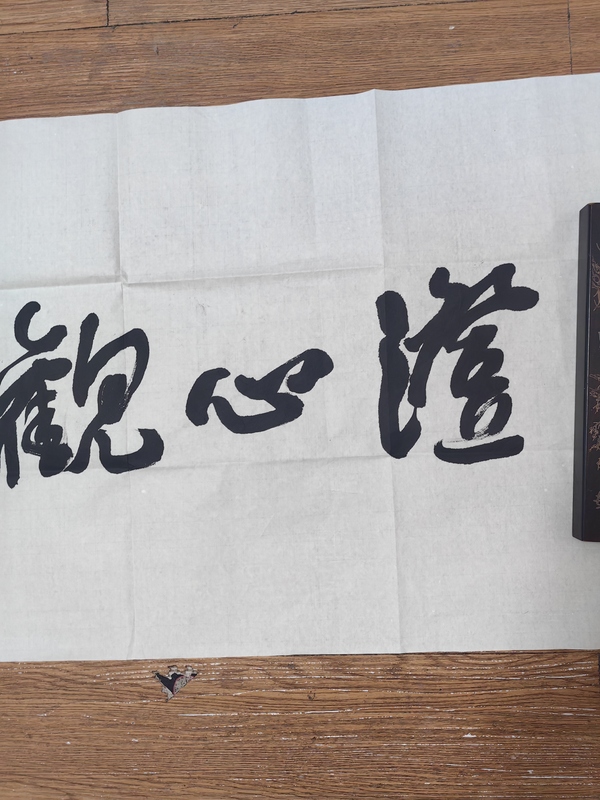 澄心觀